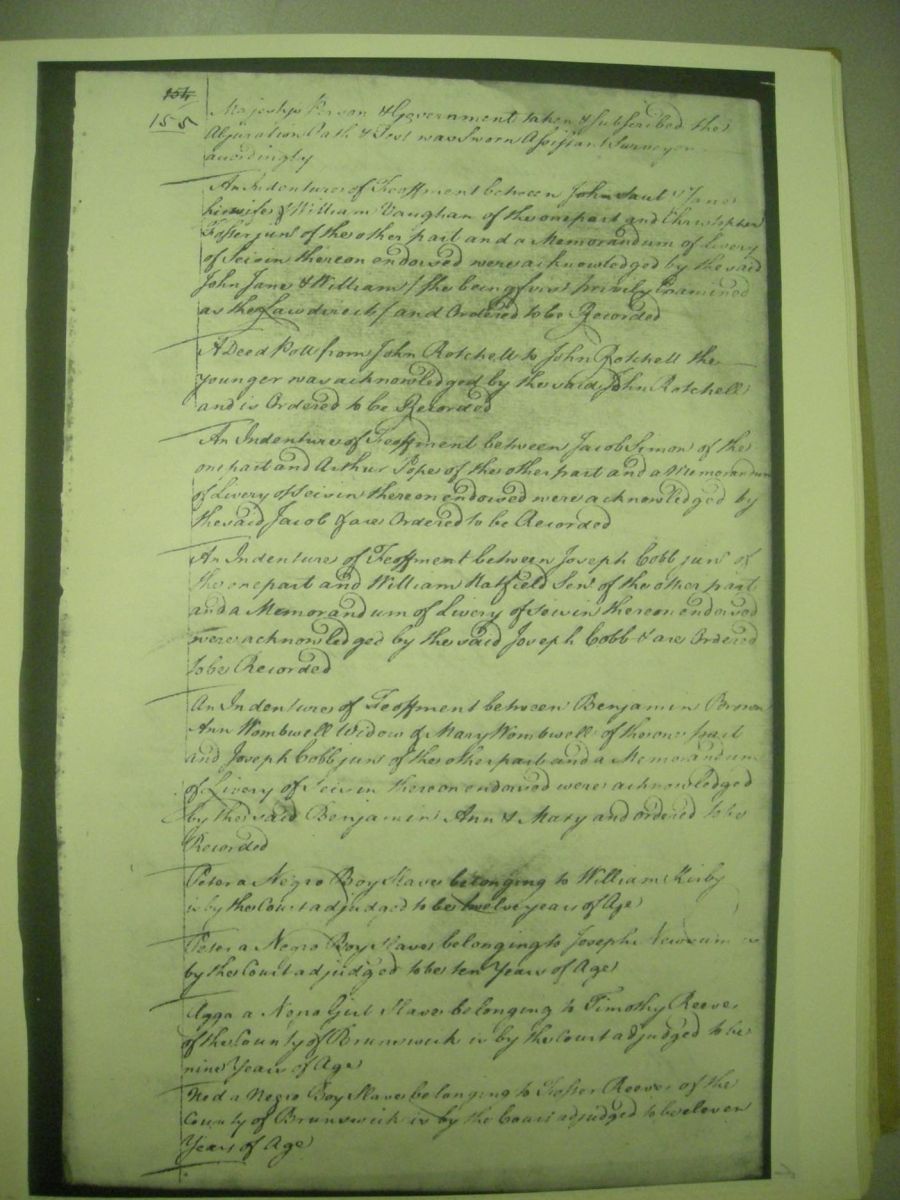 154
155
Majestys Person & Government taken & subscribed the
Abjuration Oath & Test was Sworn Assistant Surveyor
accordingly
An Indenture of Feoffment between John Saul & Jane
his wife & William Vaughan of the one part and Christopher
Foster junr of the other part and a Memorandum of Livery
of Seisin thereon endorsed were acknowledged by the said
John Jane & William / she being first privily Examined
as the Law directs / and Ordered to be Recorded
A Deed Poll from John Rotchell to John Rotchell the
younger was acknowledged by the said John Rotchell
and is Ordered to be Recorded
An Indenture of Feoffment between Jacob Simon of the
one part and Arthur Pope of the other part and a Memorandum
of Livery of Seisin thereon endorsed were acknowledged by
the said Jacob & are Ordered to be Recorded
An Indenture of Feoffment between Joseph Cobb junr of
the one part and William Hatfield Senr of the other part
and a Memorandum of Livery of Seisin thereon endorsed
were acknowledged by the said Joseph Cobb & are Ordered
to be Recorded
An Indenture of Feoffment between Benjamin Brown
Ann Wombwell Widow & Mary Wombwell of the one part
and Joseph Cobb junr of the other part and a Memorandum
of Livery of Seisin thereon endorsed were acknowledged
by the said Benjamin Ann & Mary and ordered to be
Recorded
Peter a Negro Boy Slave belonging to William Kirby
is by the Court adjudged to be twelve years of Age
Peter a Negro Boy Slave belonging to Joseph Newsum is
by the Court adjudged to be ten Years of Age
Agga a Negro Girl Slave belonging to Timothy Reeves
of the County of Brunswick is by the Court adjudged to be
nine Years of Age
Ned a Negro Boy Slave belonging to Foster Reeves of the
County of Brunswick is by the Court adjudged to be eleven
Years of Age